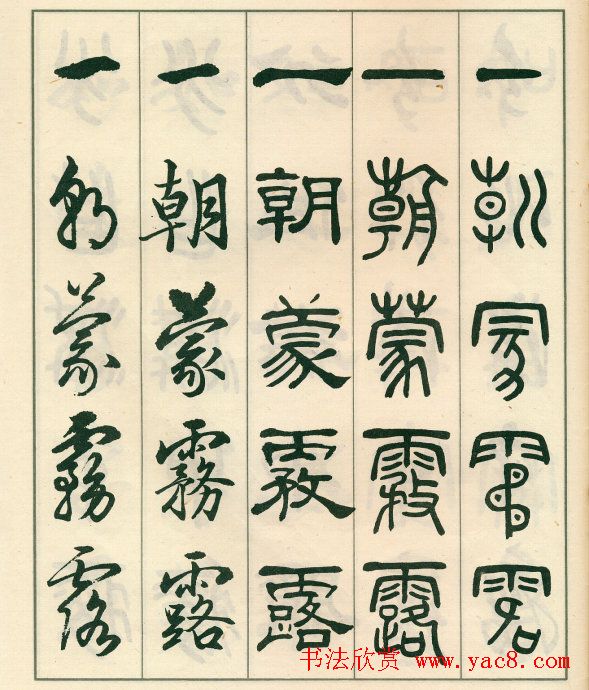 一朝蒙霧露
一朝蒙霧露
一朝蒙霧露
一朝蒙霧露
一朝蒙霧露
书法欣赏 www.yac8.com